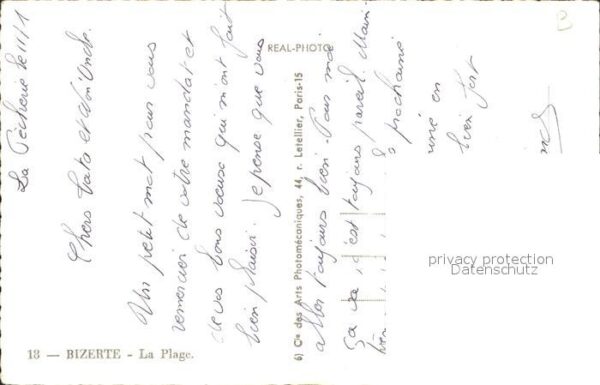 La Pêcherie le 11/1
Chers tata et Don Uncle.
Un petit mot pour vous
remercier de votre mandat et
de vos bons voeux qui m'ont fait
bien plaisir. Je pense que vous
allez toujours bien. Pour moi
ça va, c'est toujours pareil.
bien
prochaine
bien fort
REAL-PHOTO
6) Cie des Arts Photomécaniques, 44, r. Letellier, Paris-15
18 — BIZERTE - La Plage.
B
privacy protection
Datenschutz